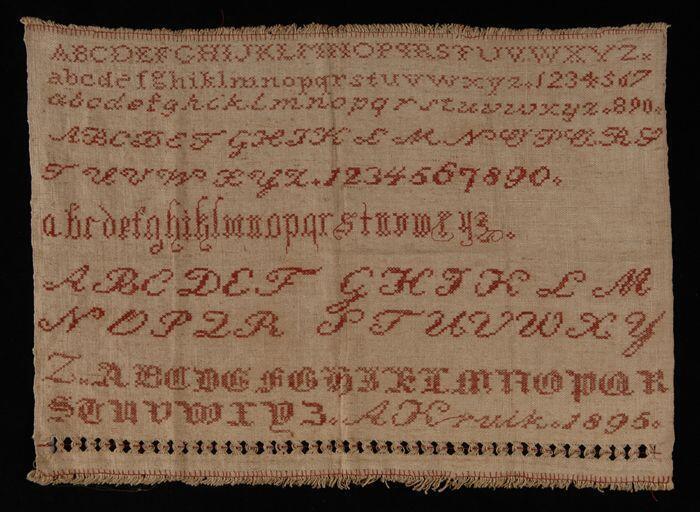 ABCDEFGHIJKLMNOPQRSTUVWXYZ.
abcdefghiklmnopqrstuvwxyz.1234567
abcdefghiklmnopqrstuvwxyz.890.
ABCDEFGHIKLMNOPQRS
TUVWXYZ.1234567890.
abcdefghiklmnopqrstuvwxyz.
ABCDEF GHIKLM
NOPQR STUVWXY
Z.ABCDEFGHIKLMNOPQR
STUVWXYZ. AKruik.1895.